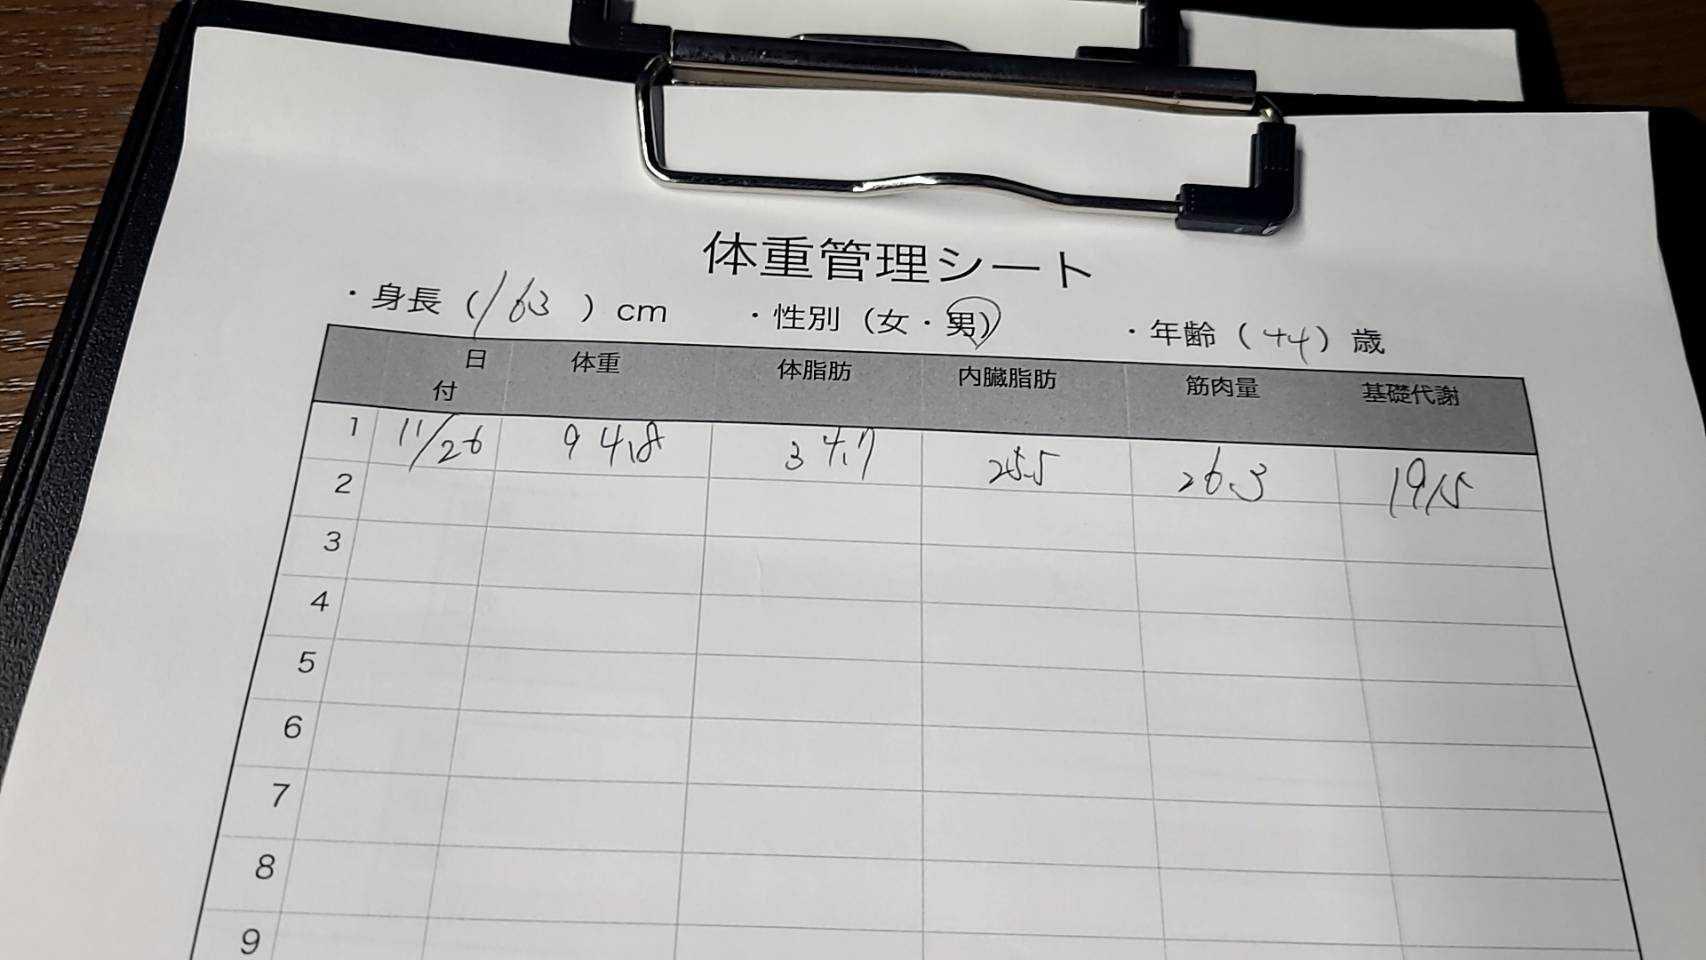 体重管理シート
・身長（163）cm ・性別（女・男） ・年齢（44）歳
日付 体重 体脂肪 内臓脂肪 筋肉量 基礎代謝
1 11/26 94.8 34.7 25.5 26.3 1915
2
3
4
5
6
7
8
9